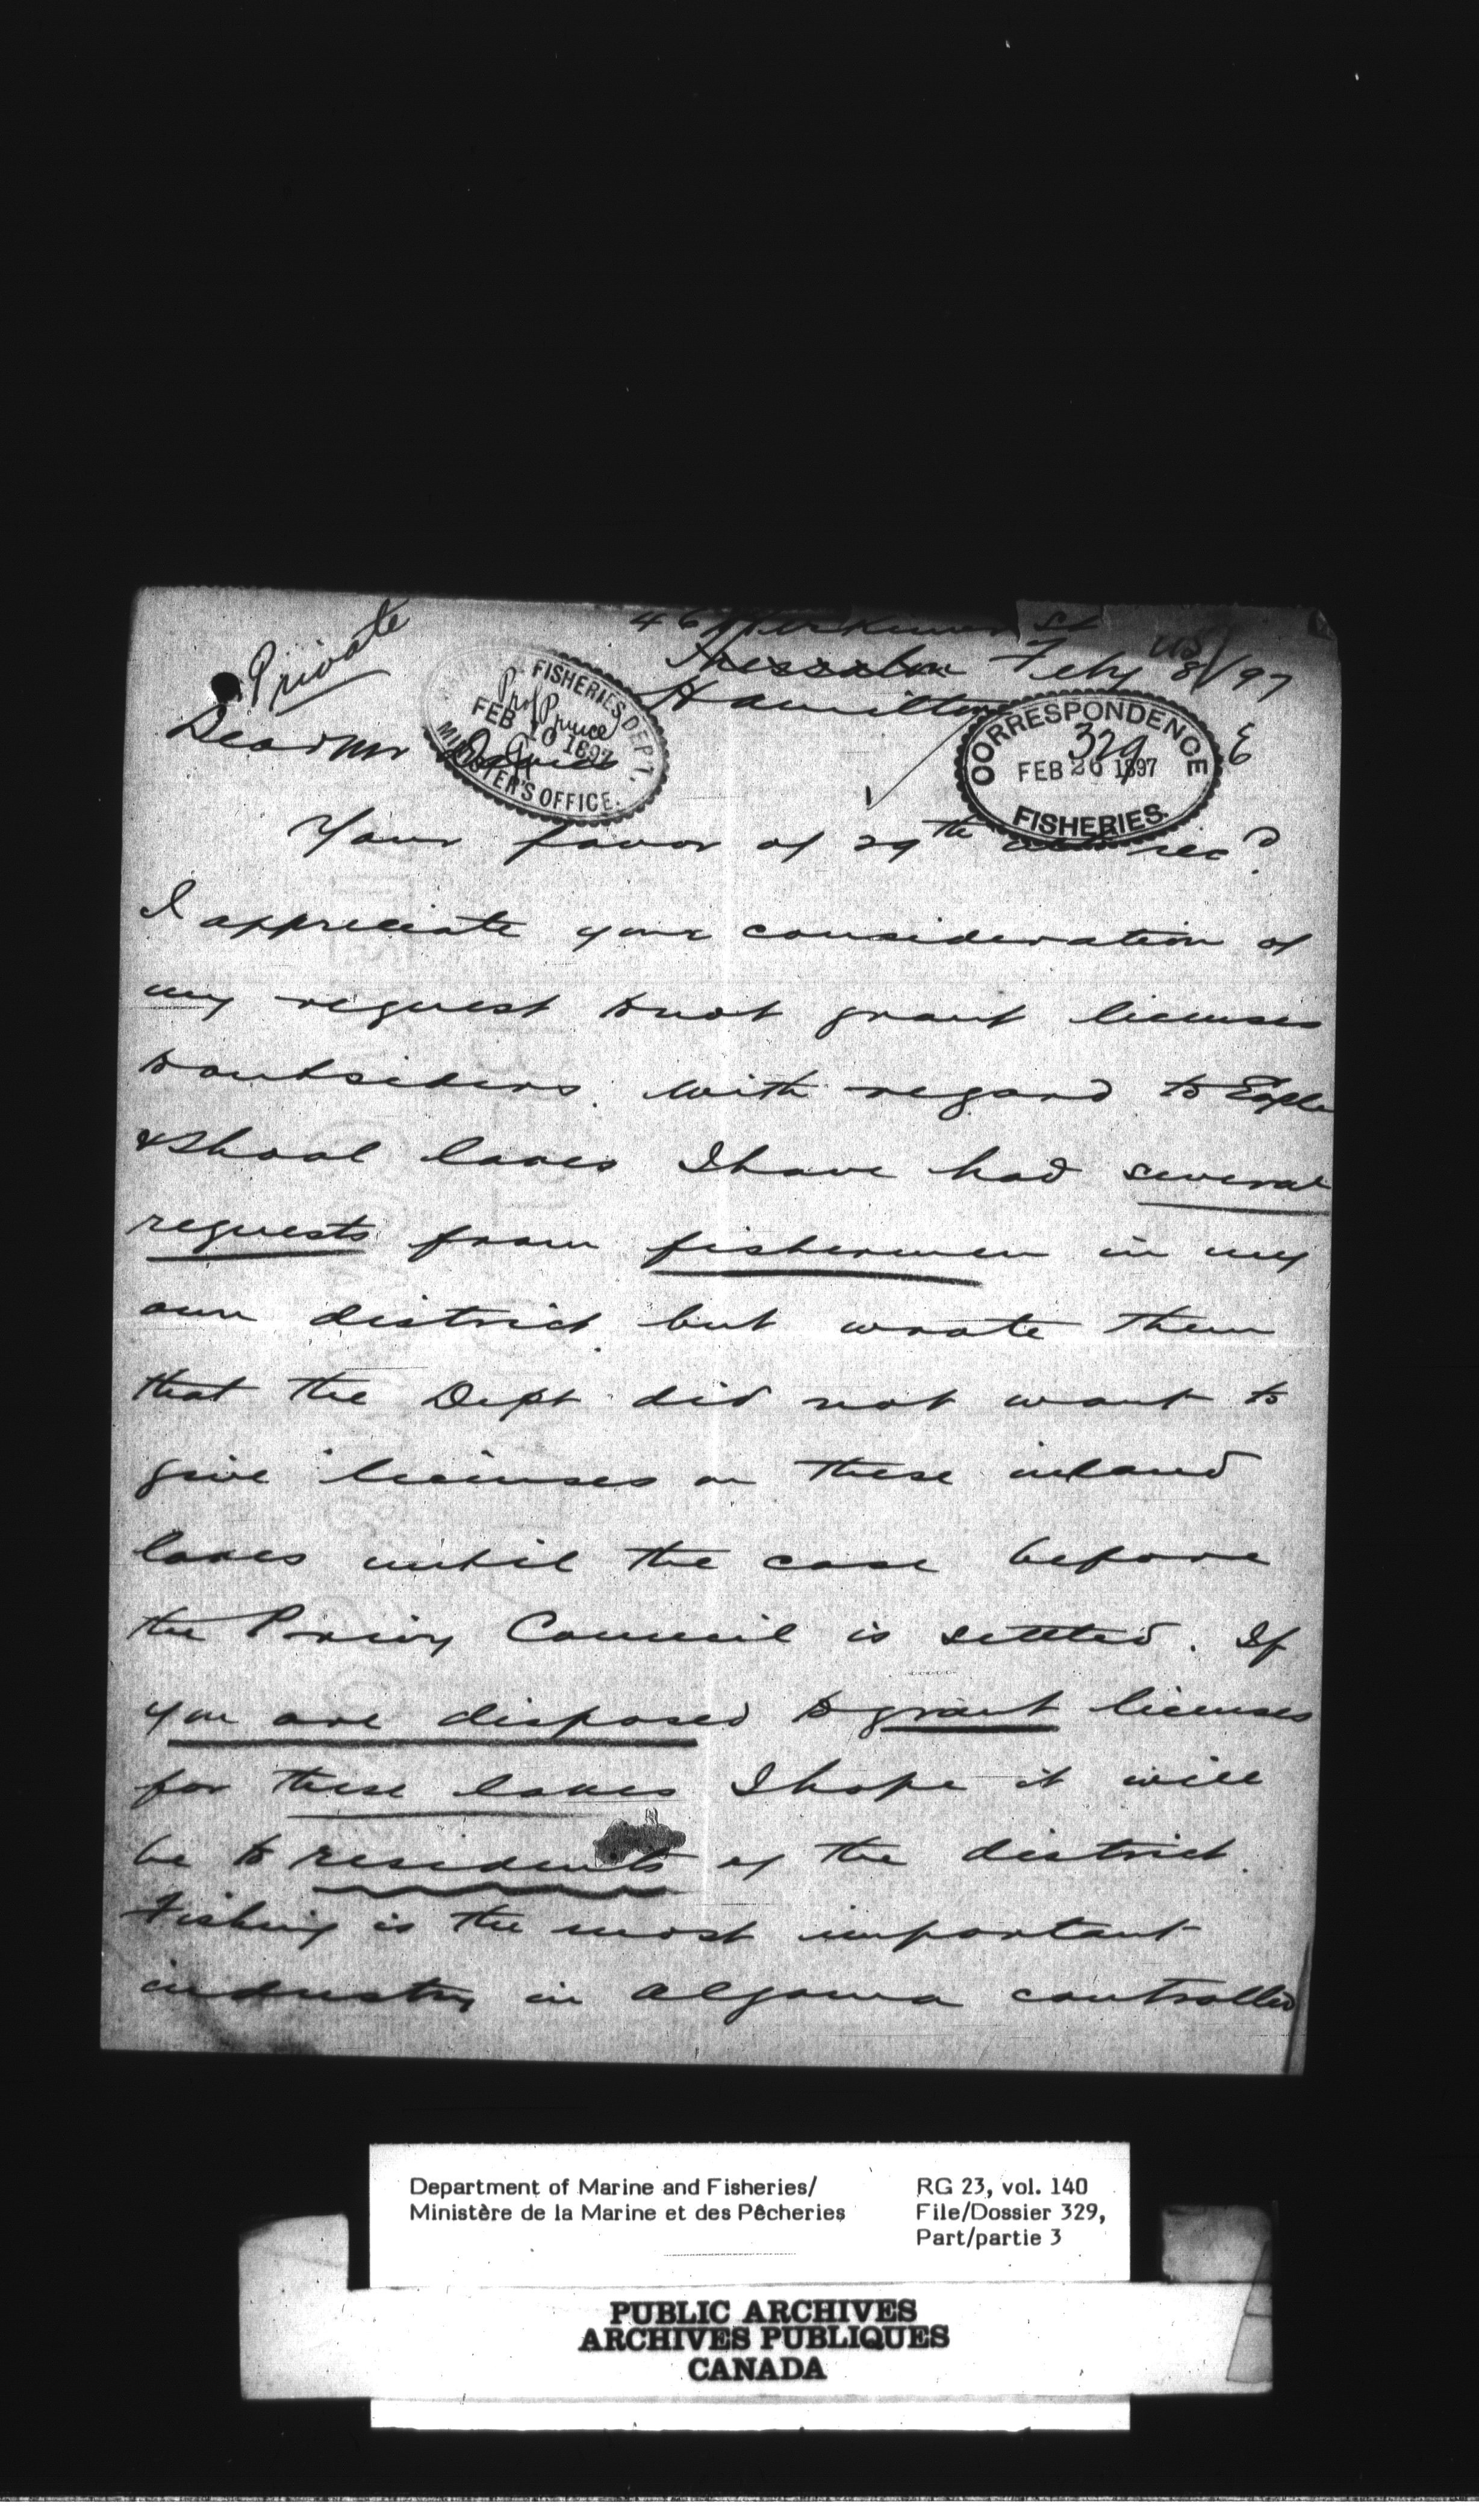 Private
46 Herkimer St
Thessalon Feby 8/97
Hamilton
FISHERIES DEPT.
Prof Prince
FEB 10 1897
MINISTER'S OFFICE.
CORRESPONDENCE
329
FEB 26 1897
FISHERIES.
Dear Mr Davies
Your favor of 29th ult recd
I appreciate your consideration of
my request to not grant licenses
to outsiders. With regard to Eagle
& Shoal lakes I have had several
requests from fishermen in my
own district but wrote them
that the Dept did not want to
give licenses on these inland
lakes until the case before
the Privy Council is settled. If
you are disposed to grant licenses
for these lakes I hope it will
be to residents of the district.
Fishing is the most important
industry in Algoma controlled
Department of Marine and Fisheries/
Ministère de la Marine et des Pêcheries
RG 23, vol. 140
File/Dossier 329,
Part/partie 3
PUBLIC ARCHIVES
ARCHIVES PUBLIQUES
CANADA